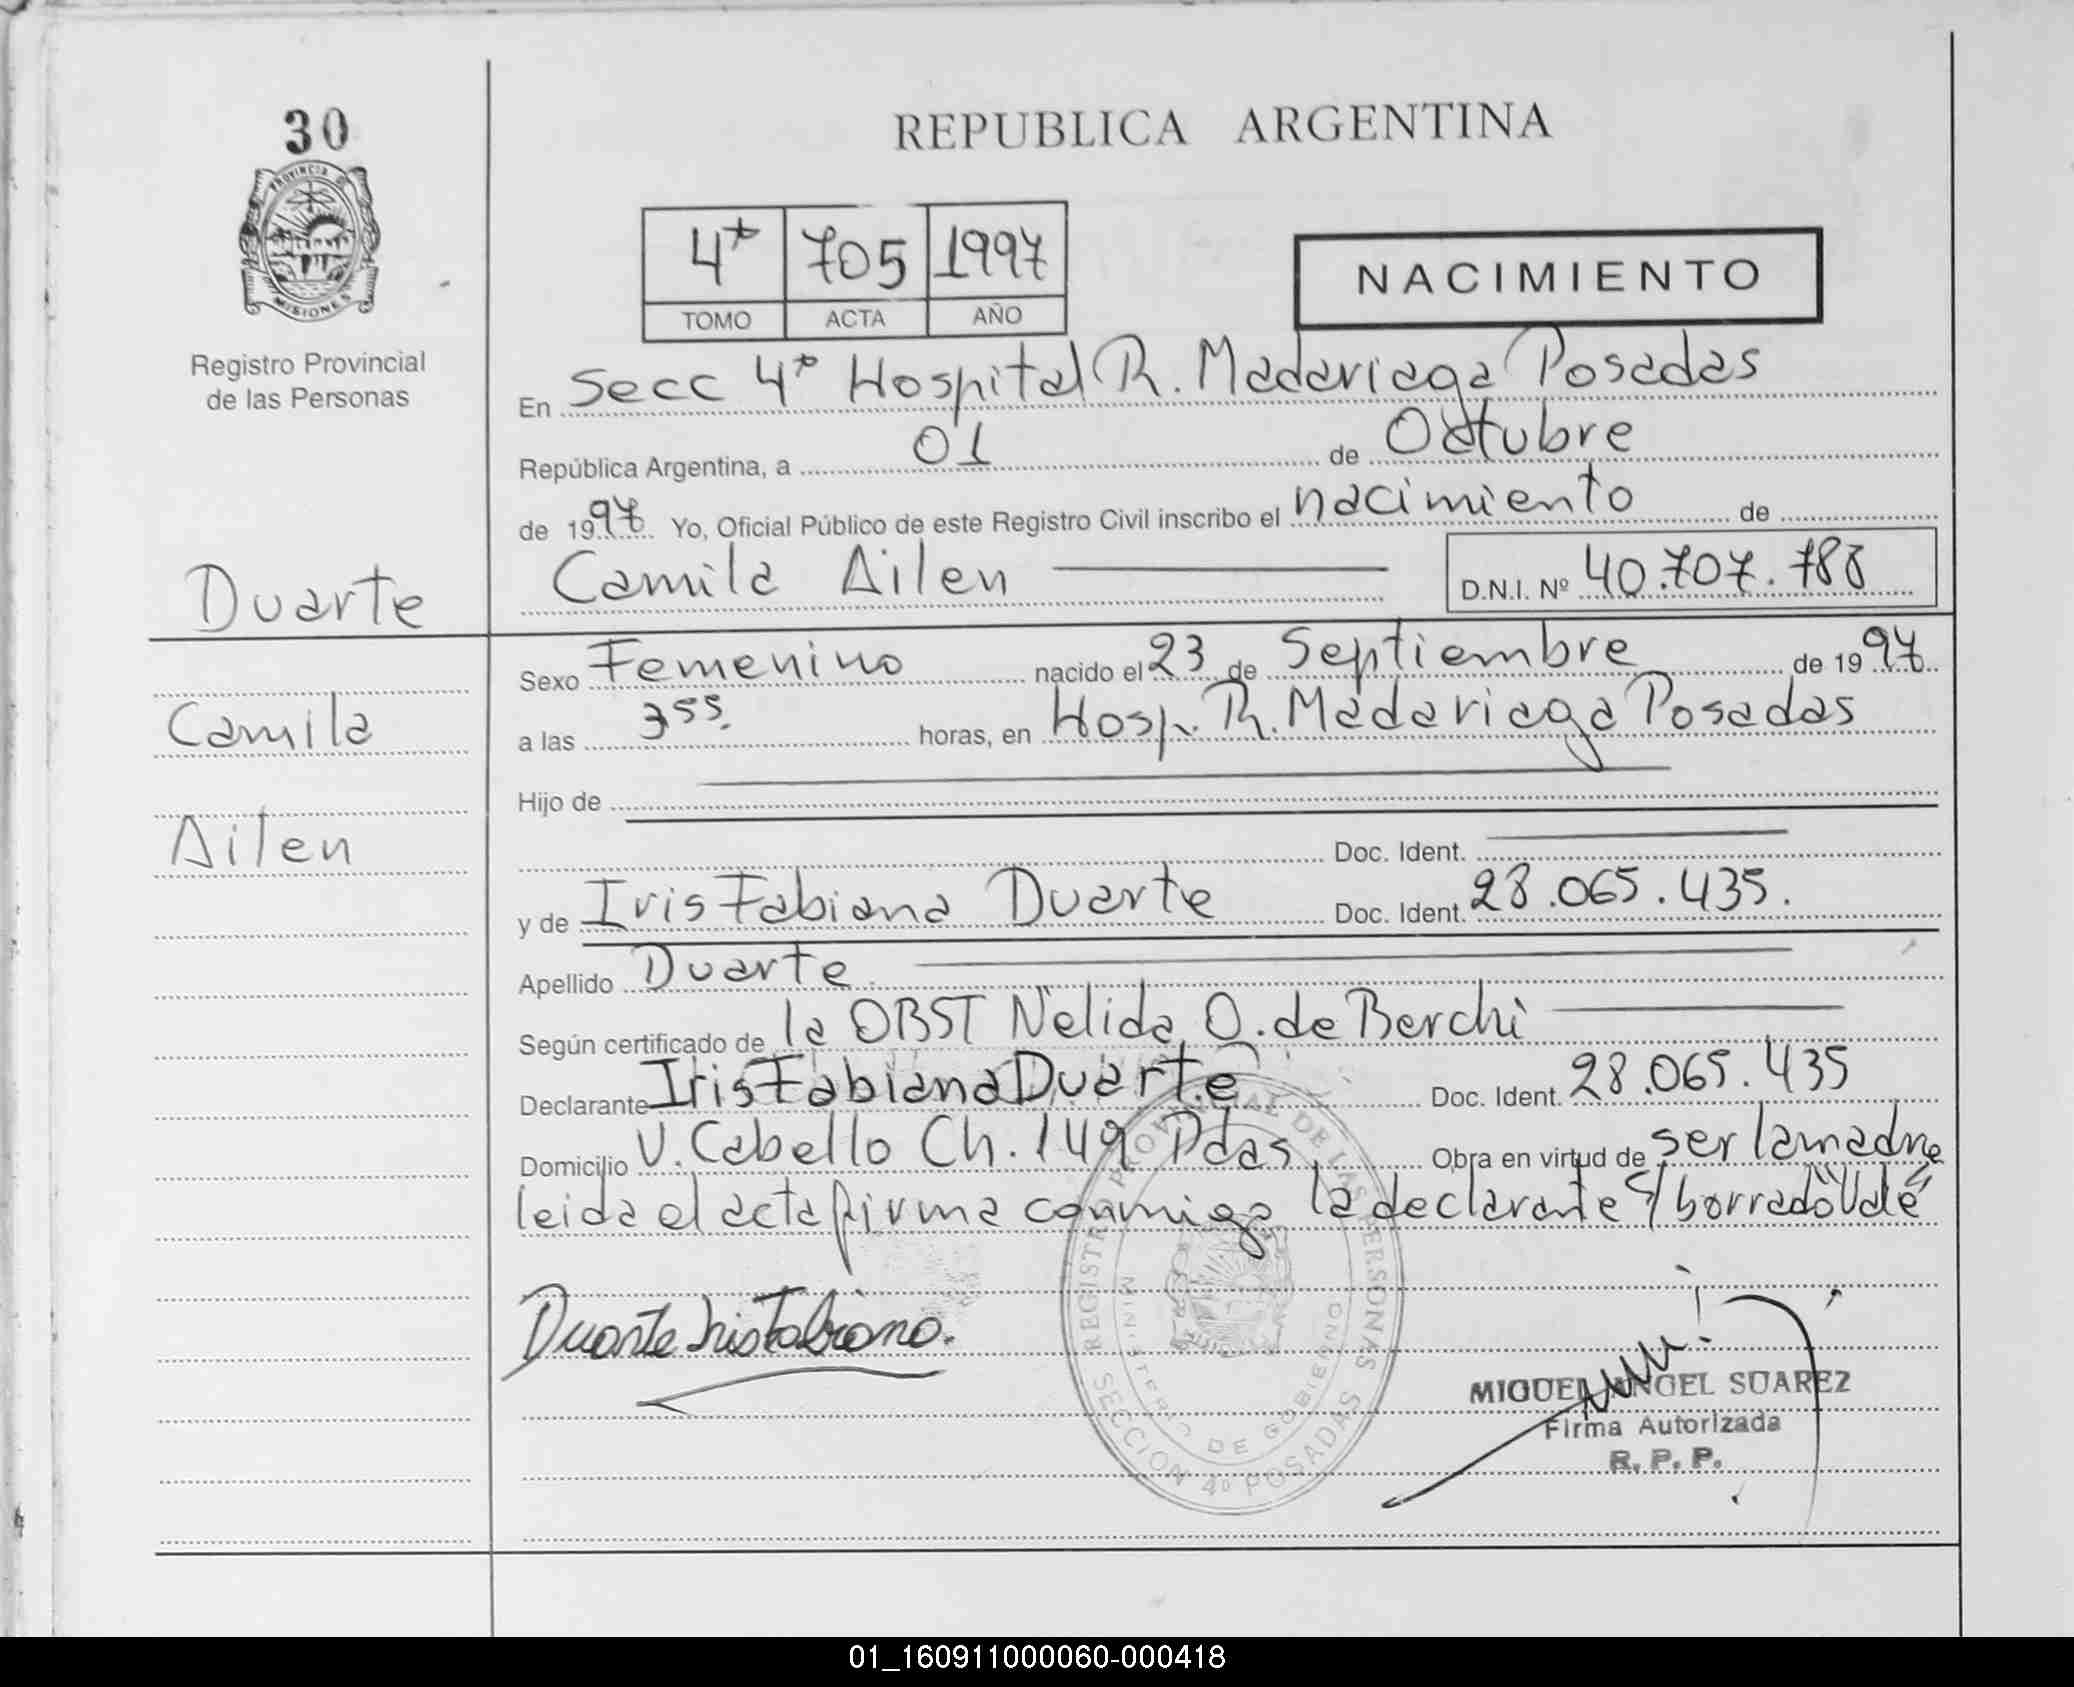 30
PROVINCIA DE
MISIONES
Registro Provincial
de las Personas
REPUBLICA ARGENTINA
4º 705 1997
TOMO ACTA AÑO
NACIMIENTO
En Secc 4º Hospital R. Madariaga Posadas
República Argentina, a 01 de Octubre
de 1997 Yo, Oficial Público de este Registro Civil inscribo el nacimiento de
Duarte
Camila Ailen D.N.I. Nº 40.707.788
Sexo Femenino nacido el 23 de Septiembre de 1997
Camila
a las 355. horas, en Hosp. R. Madariaga Posadas
Hijo de
Ailen
Doc. Ident.
y de Iris Fabiana Duarte Doc. Ident. 28.065.435.
Apellido Duarte
Según certificado de la OBST Nelida O. de Berchi
Declarante Iris Fabiana Duarte Doc. Ident. 28.065.435
Domicilio V. Cabello Ch. 149 Pdas Obra en virtud de ser la madre
leida el acta firma conmigo la declarante s/ borrado "Vale"
Duarte Iris Fabiana.
REGISTRO PROVINCIAL DE LAS PERSONAS
MINISTERIO DE GOBIERNO
SECCION 4º POSADAS
MIGUEL ANGEL SUAREZ
Firma Autorizada
R. P. P.
01_160911000060-000418